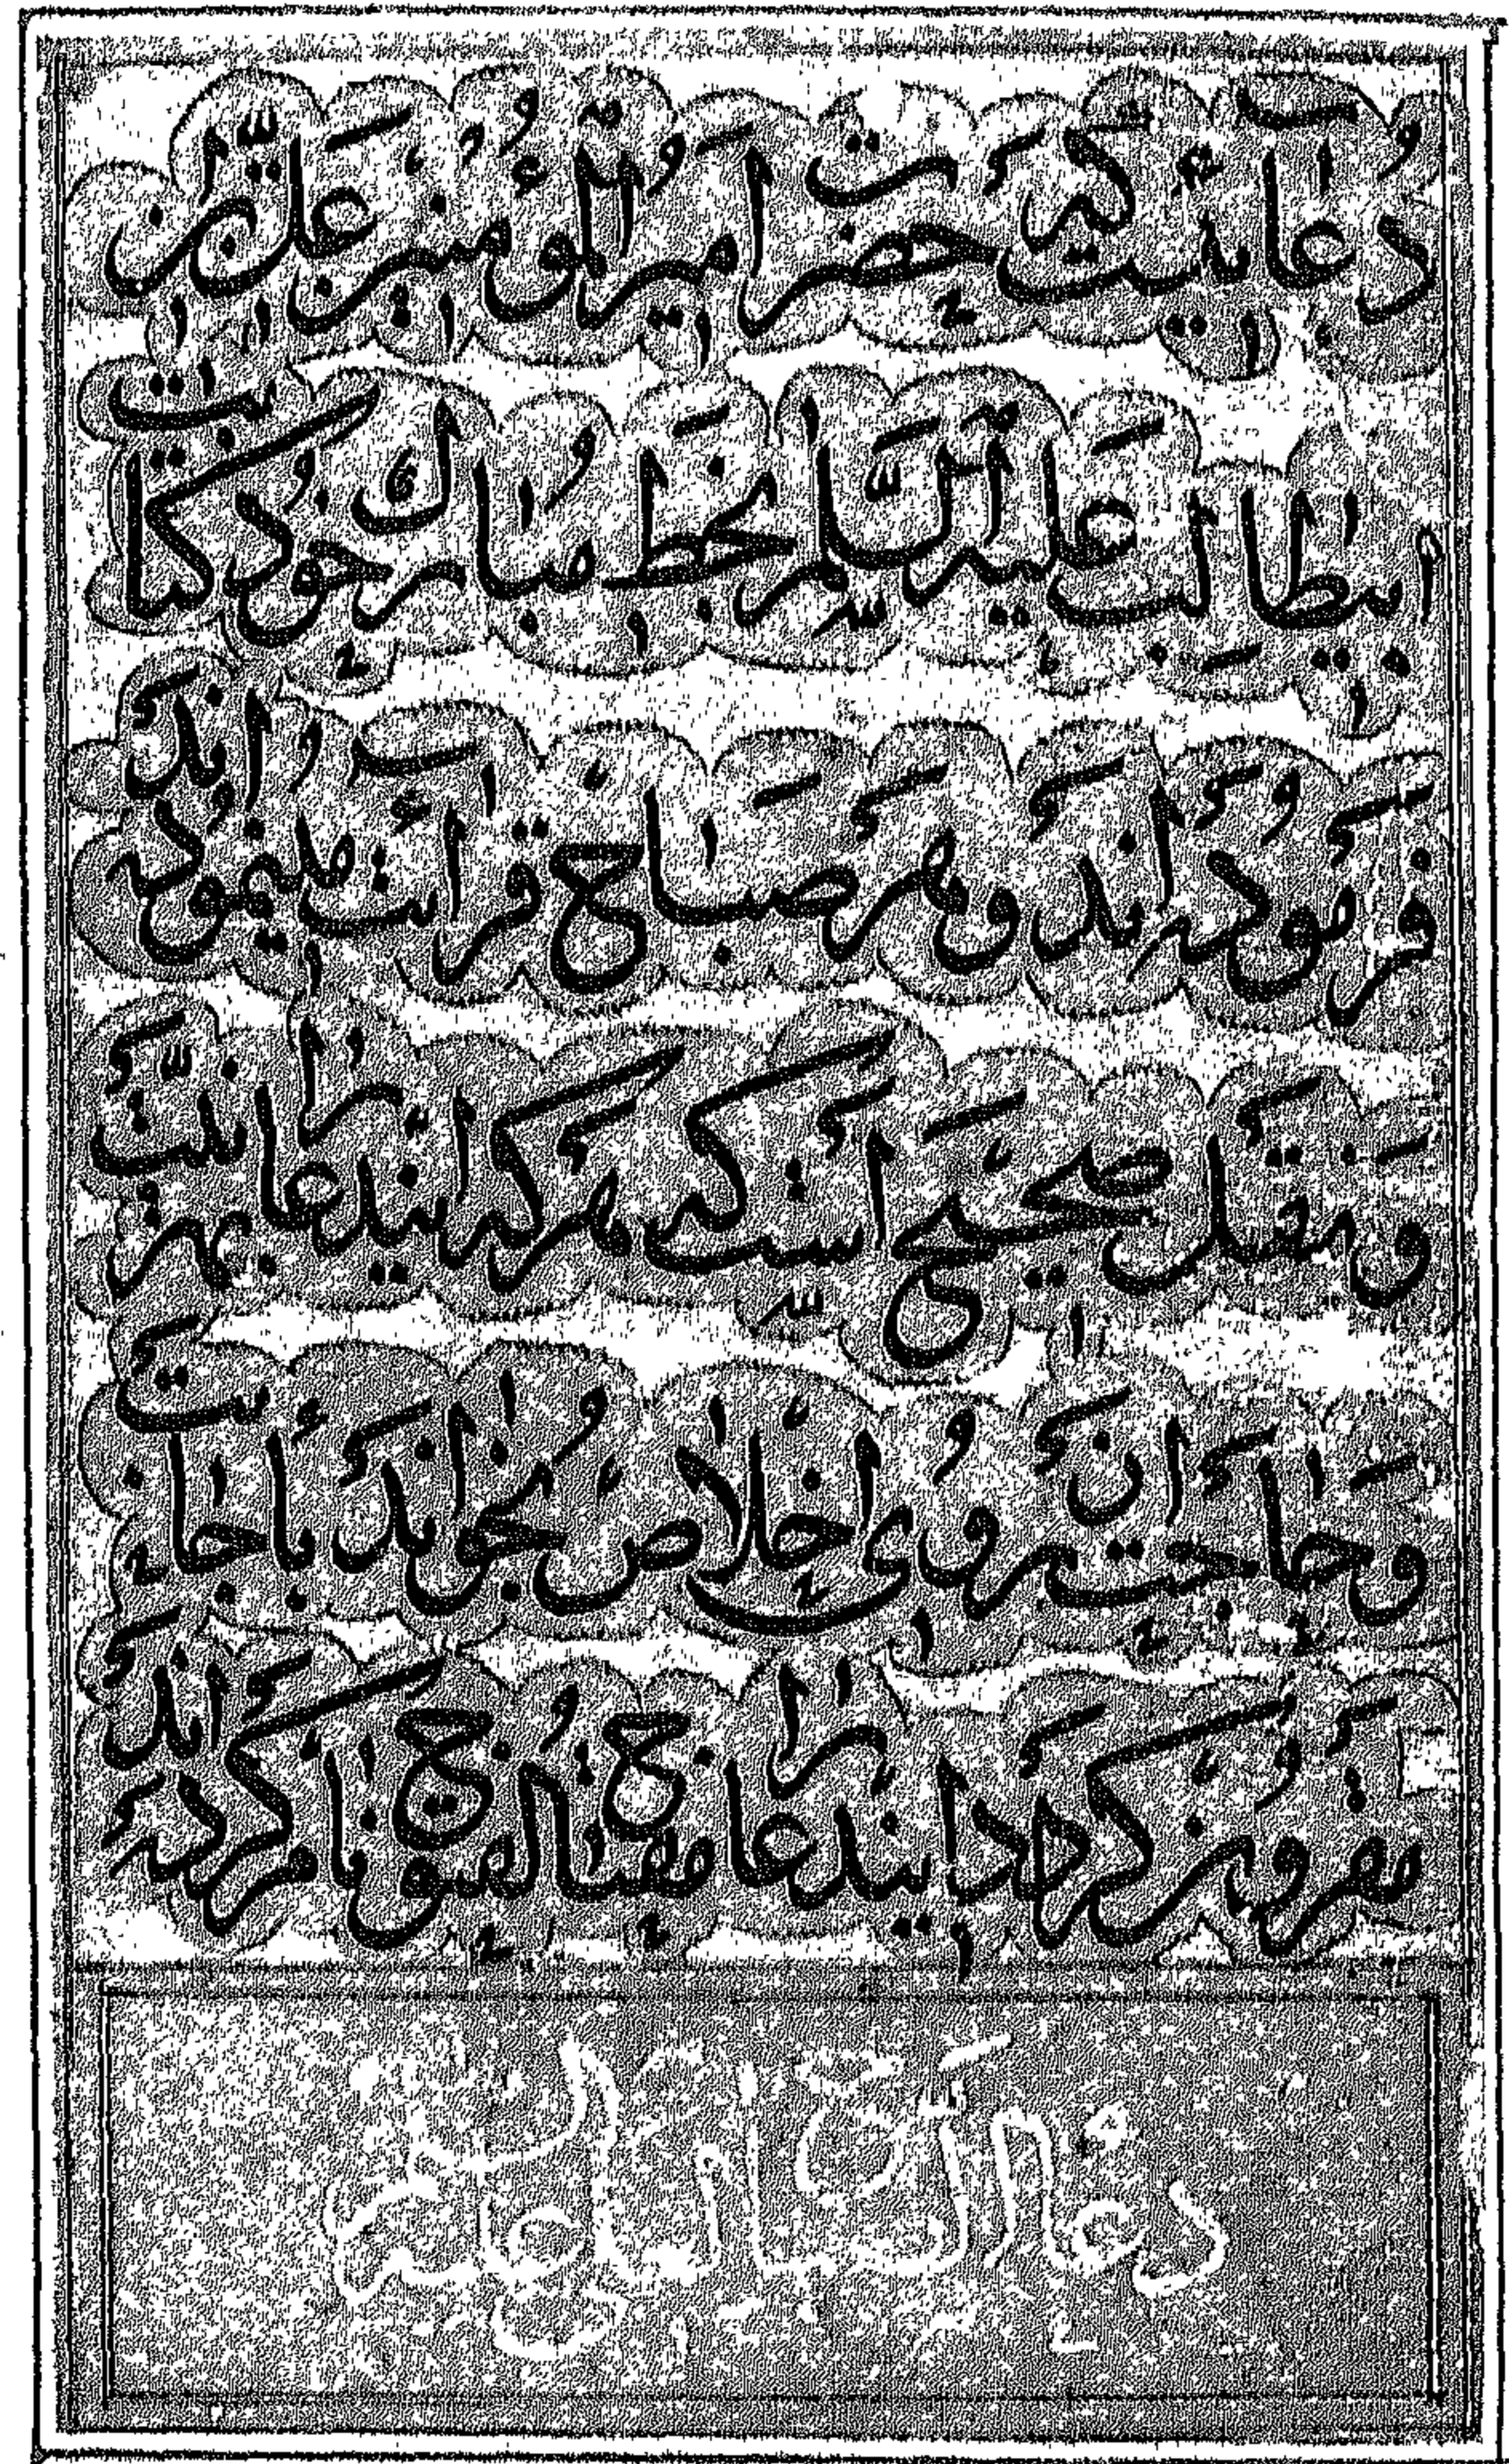 دعائیست که حضرت امیر المؤمنین علی بن
ابیطالب علیه السلام بخط مبارک خود کتابت
فرموده اند و هر صباح قراءت میموده اند
و نقل صحیح است که هر که این دعا به نیت
و حاجتی روی اخلاص بخواند باجابت
مقرون کردد این دعا مفتاح الفتوح نام کرده اند
دعاء الصباح